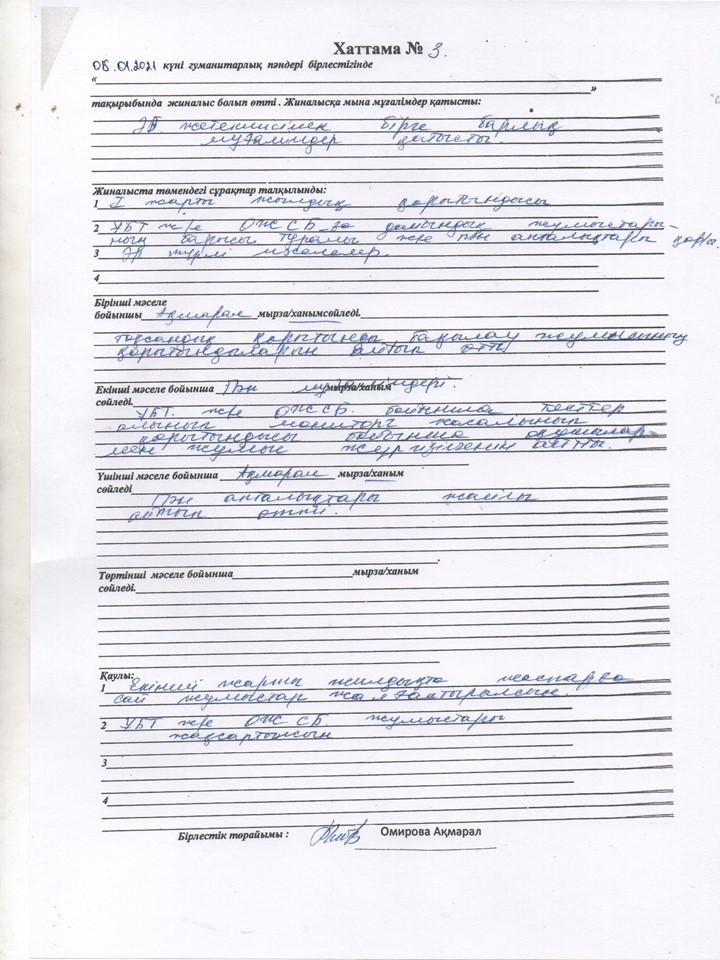 Хаттама № 3.
08.01.2021 күні гуманитарлық пәндері бірлестігінде
«
»
тақырыбында жиналыс болып өтті . Жиналысқа мына мұғалімдер қатысты:
ӘБ жетекшісімен бірге барлық
мұғалімдер қатысты.
Жиналыста төмендегі сұрақтар талқылынды:
1 I жарты жылдық қорытындысы
2 ҰБТ және ОЖСБ-ға дайындық жұмыстары-
ның барысы туралы және пән апталықтары
3 Әр түрлі мәселелер.
4
Бірінші мәселе
бойыншы Ақмарал мырза/ханымсөйледі.
тоқсандық қорытынды бақылау жұмысының
қорытындыларын айтып өтті
Екінші мәселе бойынша Пән мұғалімдері. мырза/ханым
сөйледі.
ҰБТ. және ОЖСБ. бойынша тесттер
алынып мониторг жасалынып
қорытындысы бойынша оқушылар-
мен жұмыс жүргізілгенін айтты.
Үшінші мәселе бойынша Ақмарал мырза/ханым
сөйледі Пән апталықтары жайлы
айтып өтті.
Төртінші мәселе бойынша мырза/ханым
сөйледі.
Қаулы:
1 Екінші жарты жылдықта жоспарға
сай жұмыстар жалғастырылсын.
2 ҰБТ және ОЖСБ. жұмыстары
жақсартылсын
3
4
Бірлестік төрайымы : Омирова Ақмарал